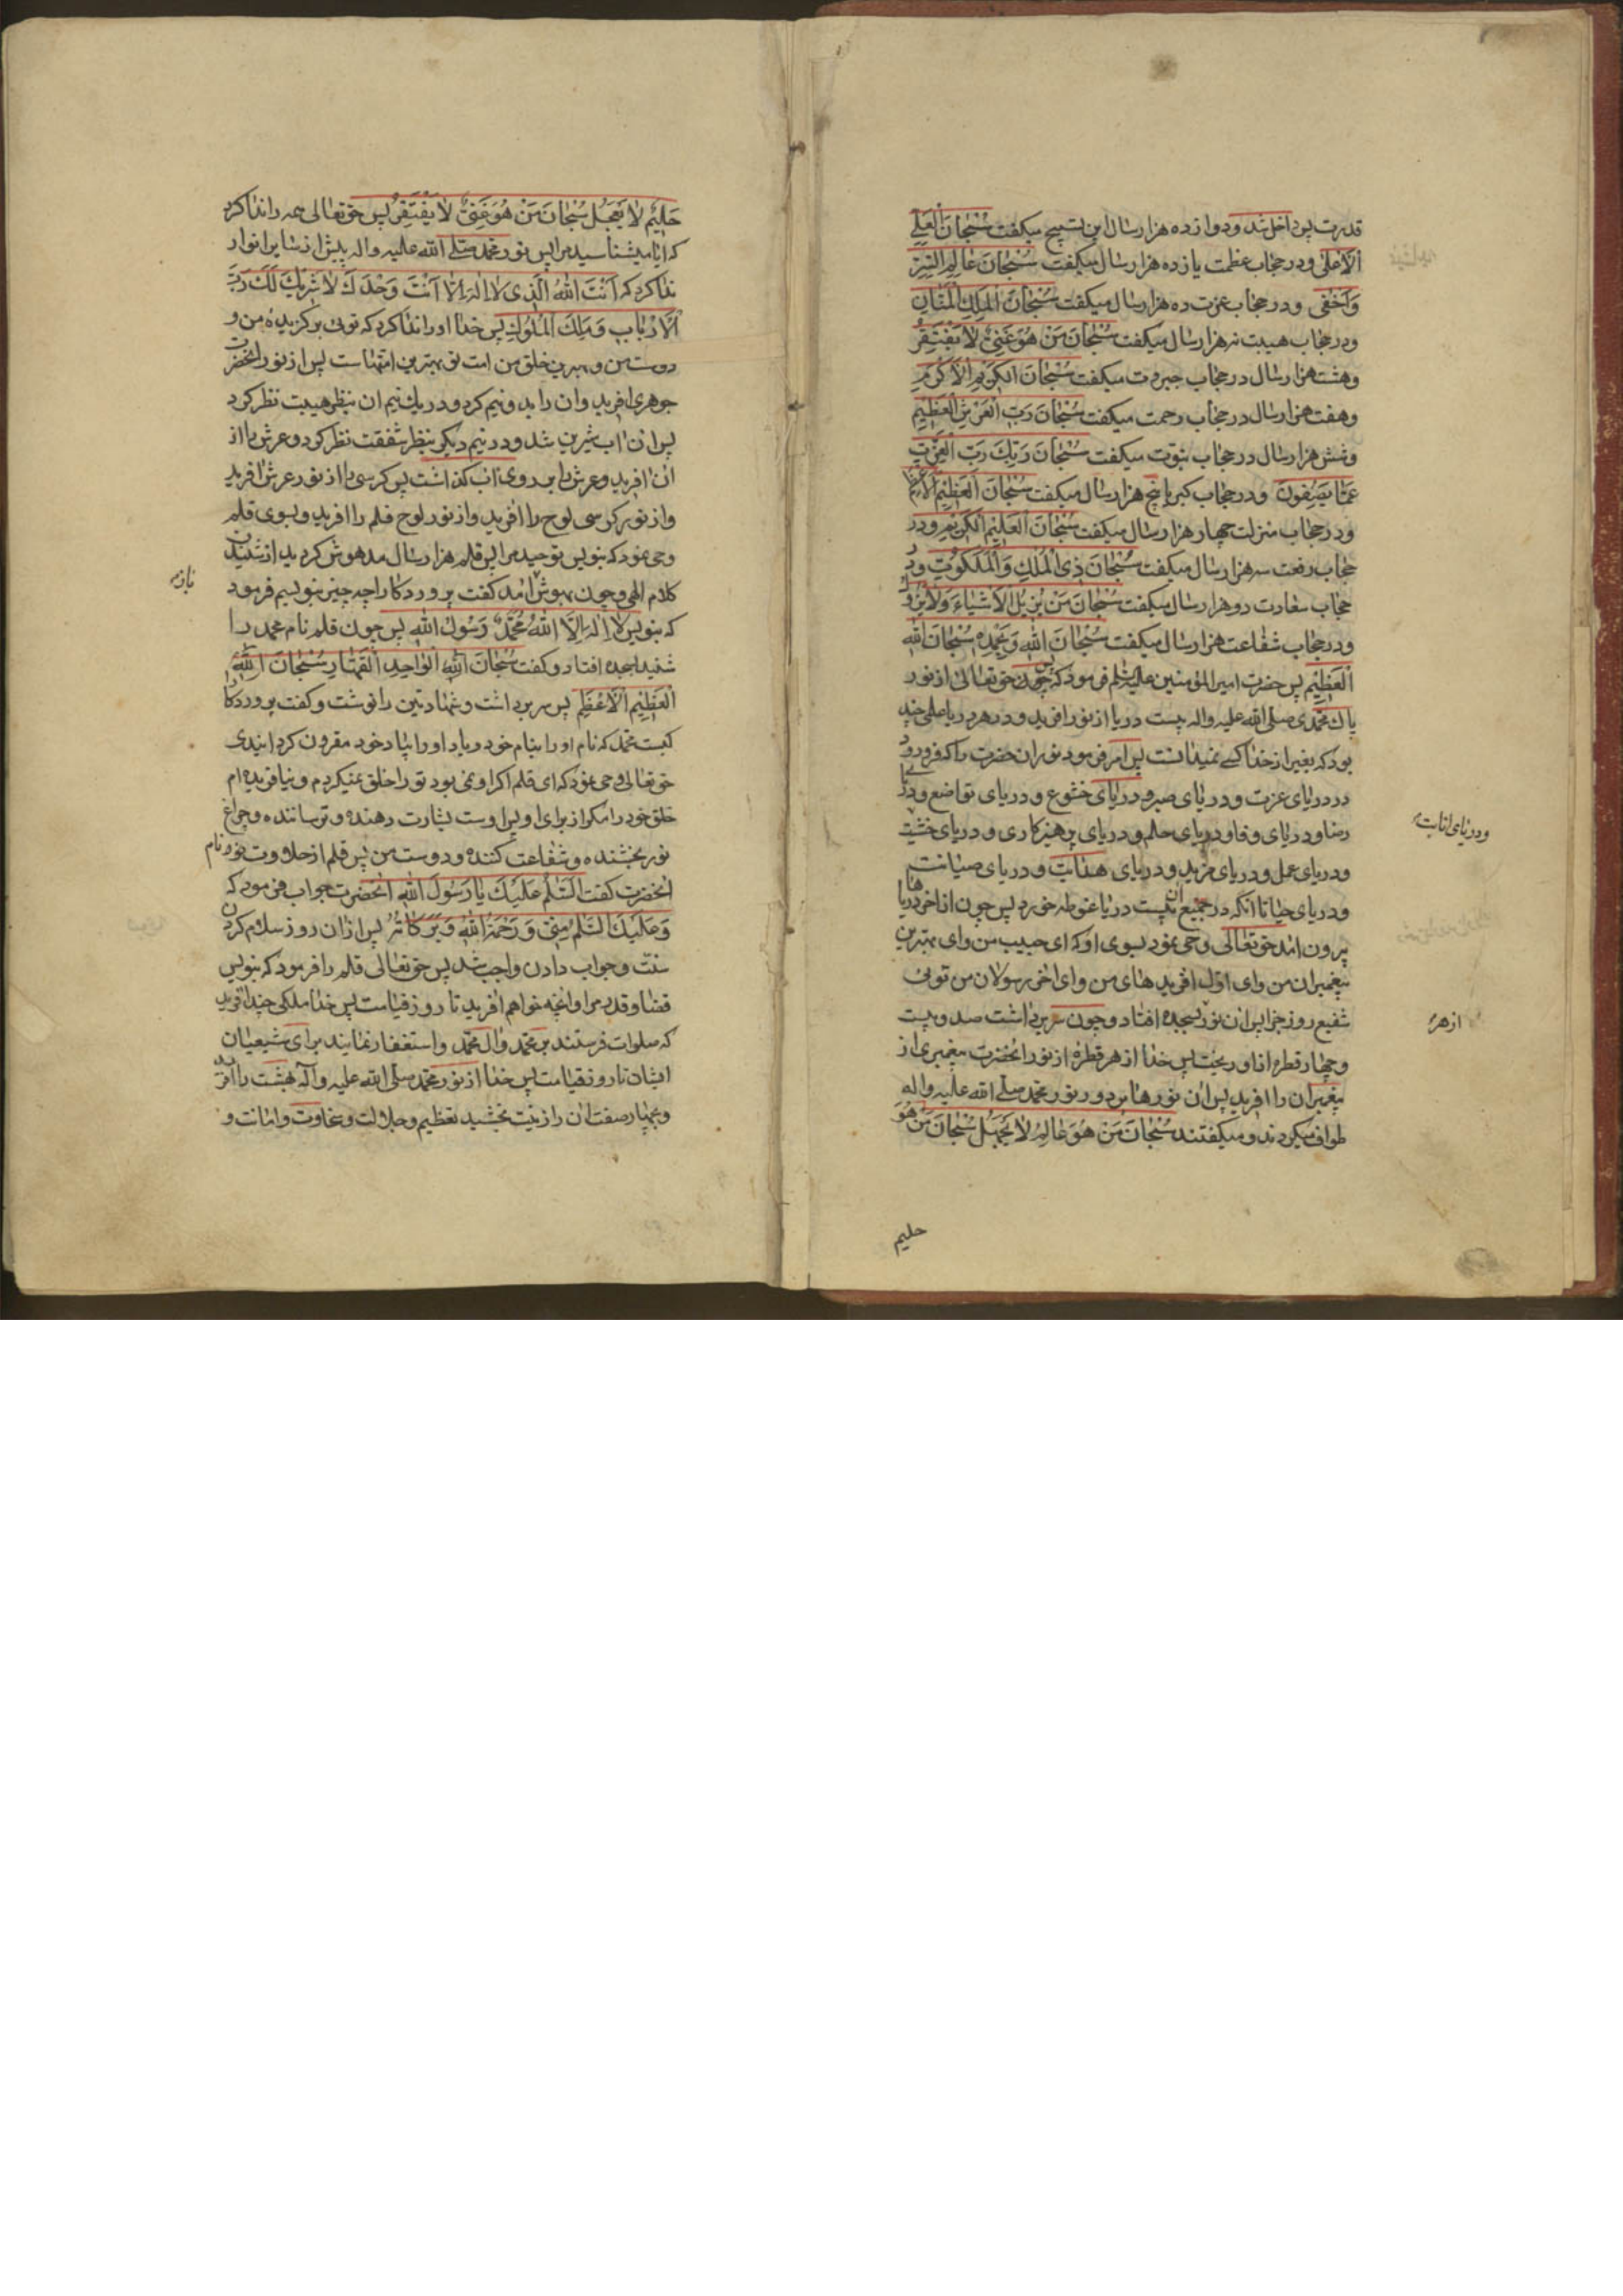 قدرت پس داخل شد و دوازده هزار سال این تسبیح میکفت سُبْحانَ الْعَلِیِّ
الْاَعْلیٰ و در حجاب عظمت یازده هزار سال میکفت سُبْحانَ عالِمِ السِّرِّ
وَاَخْفیٰ و در حجاب عزت ده هزار سال میکفت سُبْحانَ الْمَلِکِ الْمَنّانِ
و در حجاب هیبت نه هزار سال میکفت سُبْحانَ مَنْ هُوَ غَنِیٌّ لا یَفْتَقِرُ
و هشت هزار سال در حجاب جبروت میکفت سُبْحانَ الْکَرِیْمِ الْاَکْرَمِ
و هفت هزار سال در حجاب رحمت میکفت سُبْحانَ رَبِّ الْعَرْشِ الْعَظِیْمِ
و شش هزار سال در حجاب نبوت میکفت سُبْحانَ رَبِّکَ رَبِّ الْعِزَّتِ
عَمّا یَصِفُونَ و در حجاب کبریا پنج هزار سال میکفت سُبْحانَ الْعَظِیْمِ الْاَعْظَمِ
و در حجاب منزلت چهار هزار سال میکفت سُبْحانَ الْعَلِیْمِ الْکَرِیْمِ و در
حجاب رفعت سه هزار سال میکفت سُبْحانَ ذِی الْمُلْکِ وَالْمَلَکُوْتِ و در
حجاب سعادت دو هزار سال میکفت سُبْحانَ مَنْ یُزِیْلُ الْاَشْیاءَ وَلا یَزُوْلُ
و در حجاب شفاعت هزار سال میکفت سُبْحانَ اللّٰهِ وَبِحَمْدِهِ سُبْحانَ اللّٰهِ
الْعَظِیْمِ پس حضرت امیر المؤمنین علیه السلم فرمود که پس چون حق تعالی از نور
پاک محمدی صلی الله علیه واله بیست دریا از نور افرید و در هر دریا علمی چند
بود که بغیر از خدا کسی نمیدانست پس امر فرمود نور ان حضرت را که فرو رود
در دریای عزت و دریای صبر و دریای خشوع و دریای تواضع و دریای
رضا و دریای وفا و دریای حلم و دریای پرهیزکاری و دریای خشیت
ودریای انابت
و دریای عمل و دریای مزید و دریای هدایت و دریای صیانت
و دریای حیا تا انکه در جمیع ان بیست دریا غوطه خورد پس چون از اخر دریاها
بیرون امد حق تعالی وحی نمود بسوی او که ای حبیب من وای بهترین
پیغمبران من وای اول افریدهای من وای اخر رسولان من توئی
شفیع روز جزا پس ان نور بسجده افتاد و چون سر برداشت صد و بیست
از هر
و چهار قطره از او ریخت پس خدا از هر قطرهٔ از نور انحضرت پیغمبری از
پیغمبران را افرید پس ان نورها بر دور نور محمد صلی الله علیه واله
طواف میکردند و میکفتند سُبْحانَ مَنْ هُوَ عالِمٌ لا یَجْهَلُ سُبْحانَ مَنْ هُوَ
حلیم
حَلِیْمٌ لا یَعْجَلُ سُبْحانَ مَنْ هُوَ غَنِیٌّ لا یَفْتَقِرُ پس حق تعالی همه را ندا کرد
که ایا میشناسید مرا پس نور محمد صلی الله علیه واله پیش از سایر انوار
ندا کرد که اَنْتَ اللّٰهُ الَّذِی لا اِلٰهَ اِلّا اَنْتَ وَحْدَکَ لا شَرِیْکَ لَکَ رَبُّ
الْاَرْبابِ وَمَلِکُ الْمُلُوْکِ پس خدا او را ندا کرد که توئی برکزیدهٔ من و
دوست من و بهترین خلق من امت تو بهترین امتهاست پس از نور انحضرت
جوهری افرید و ان را بدو نیم کرد و در یک نیم ان بنظر هیبت نظر کرد
پس ان اب شیرین شد و در نیم دیکر بنظر شفقت نظر کرد و عرش را از
ان افرید و عرش را بر روی اب کذاشت پس کرسی را از نور عرش افرید
و از نور کرسی لوح را افرید و از نور لوح قلم را افرید و بسوی قلم
وحی نمود که بنویس توحید مرا پس قلم هزار سال مدهوش کردید از شنیدن
کلام الهی و چون بهوش امد کفت پروردکارا چه چیز بنویسم فرمود
بازء
که بنویس لا اِلٰهَ اِلَّا اللّٰهُ مُحَمَّدٌ رَسُوْلُ اللّٰهِ پس چون قلم نام محمد را
شنید بسجده افتاد و کفت سُبْحانَ اللّٰهِ الْواحِدِ الْقَهّارِ سُبْحانَ اللّٰهِ
الْعَظِیْمِ الْاَعْظَمِ پس سر برداشت و شهادتین را نوشت و کفت پروردکارا
کیست محمد که نام او را بنام خود و یاد او را بیاد خود مقرون کردانیدی
حق تعالی وحی نمود که ای قلم اکر او نمی بود تو را خلق نمیکردم و نیافریدم
خلق خود را مکر از برای او پس اوست بشارت دهنده و ترساننده و چراغ
نور بخشنده و شفاعت کننده و دوست من پس قلم از حلاوت نور نام
انحضرت کفت اَلسَّلٰمُ عَلَیْکَ یا رَسُوْلَ اللّٰهِ انحضرت جواب فرمود که
وَعَلَیْکَ السَّلٰمُ مِنِّی وَرَحْمَةُ اللّٰهِ وَبَرَکاتُهُ پس از ان روز سلام کردن
سنت و جواب دادن واجب شد پس حق تعالی قلم را فرمود که بنویس
قضا و قدر مرا و انچه خواهم افرید تا روز قیامت پس خدا ملکی چند افرید
که صلوات فرستند بر محمد و ال محمد و استغفار نمایند برای شیعیان
ایشان تا روز قیامت پس خدا از نور محمد صلی الله علیه وآله بهشت را افرید
و بچهار صفت ان را زینت بخشید تعظیم و جلالت و سخاوت و امانت و